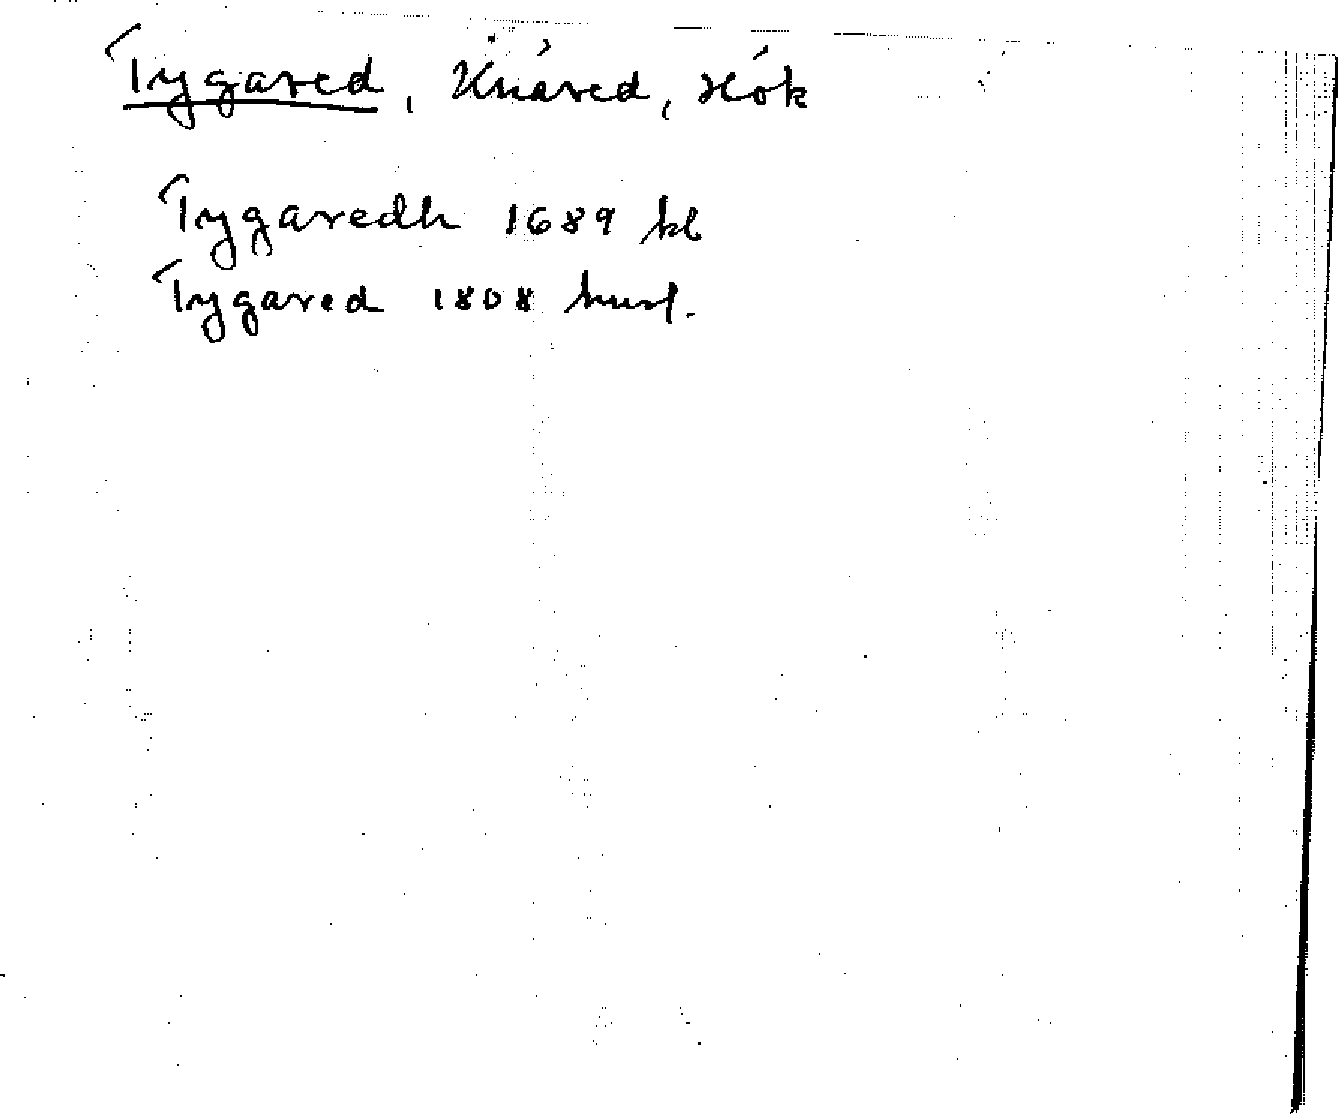 Tygared, Knäred, Hök
Tygaredh 1689 kb
Tygared 1808 husf.